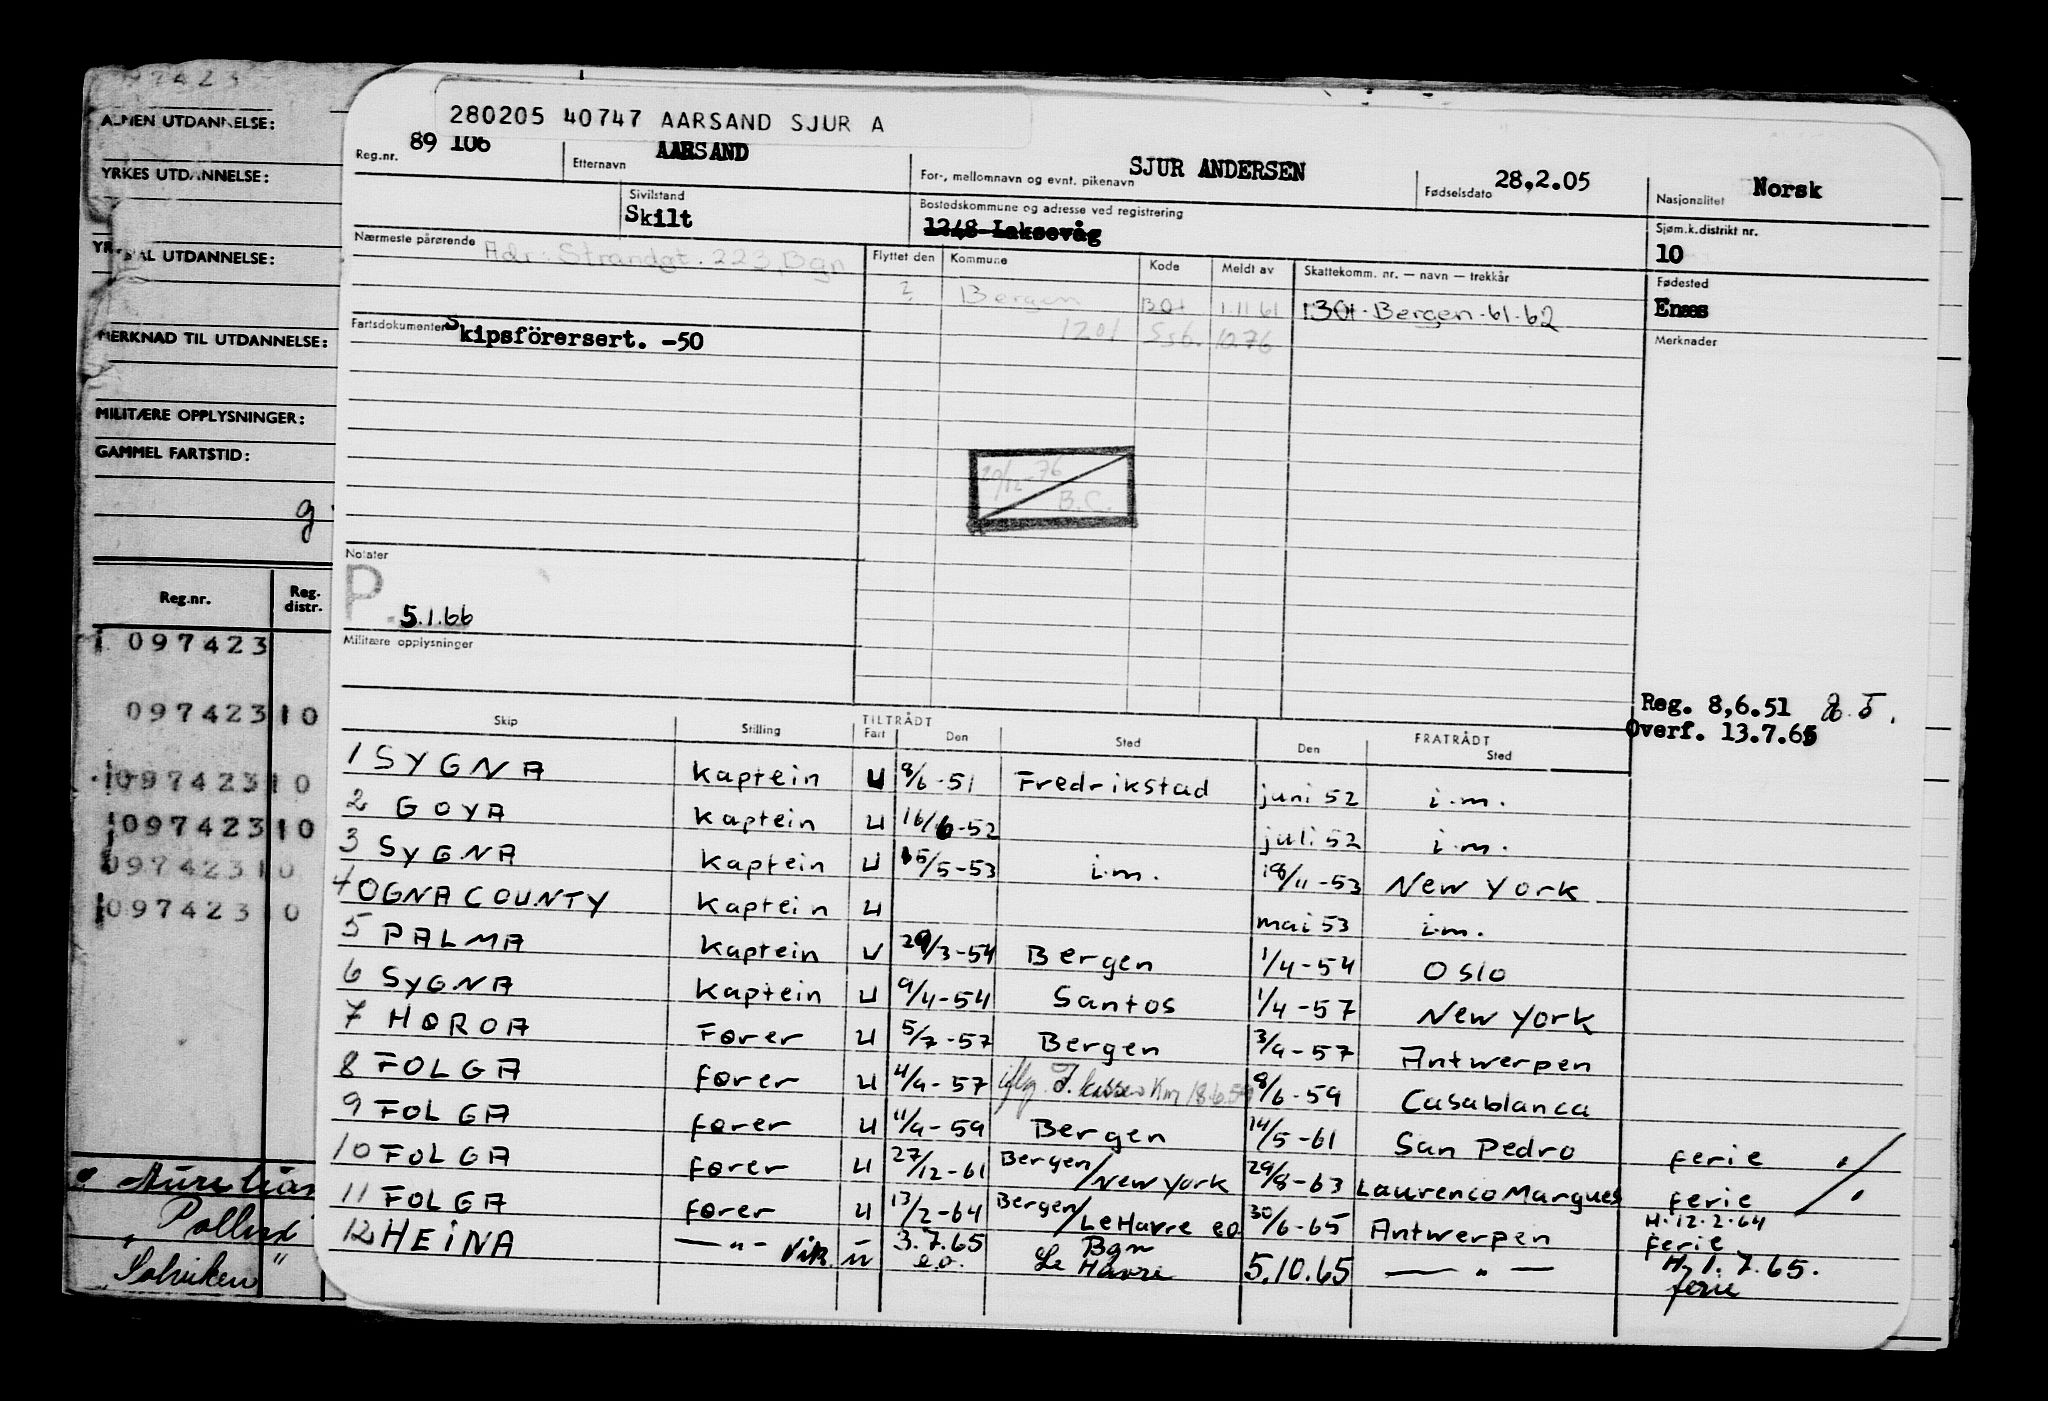 280205 40747 AARSAND SJUR A
Reg.nr. 89 106 Etternavn AARSAND For-, mellomnavn og evnt. pikenavn SJUR ANDERSEN Fødselsdato 28.2.05 Nasjonalitet Norsk
Sivilstand Skilt Bostedskommune og adresse ved registrering 1248 Laksevåg Sjøm.k.distrikt nr. 10
Nærmeste pårørende Adr: Strandgt. 223, Bgn Flyttet den Kommune Kode Meldt av Skattekomm. nr. — navn — trekkår Fødested Enæs
? Bergen 1.11.61 1301-Bergen-61-62
Fartsdokumenter Skipsförersert. -50 1201 Ssb. 1076 Merknader
20/12-76
B.C.
Notater
P
5.1.66
Militære opplysninger
Reg. 8,6.51
Overf. 13.7.65
Skip Stilling TILTRÅDT Fart Den Sted FRATRÅDT Den Sted
1 SYGNA Kaptein U 8/6-51 Fredrikstad juni 52 i.m.
2 GOYA Kaptein U 16/6-52 juli 52 i.m.
3 SYGNA Kaptein U 15/5-53 i.m. 18/11-53 New York
4 OGNA COUNTY Kaptein U mai 53 i.m.
5 PALMA Kaptein U 29/3-54 Bergen 1/4-54 Oslo
6 SYGNA Kaptein U 9/4-54 Santos 1/4-57 New York
7 HØRDA Fører U 5/7-57 Bergen 3/9-57 Antwerpen
8 FOLGA Fører U 4/9-57 18.6.59 8/6-59 Casablanca
9 FOLGA Fører U 11/9-59 Bergen 14/5-61 San Pedro ferie
10 FOLGA Fører U 27/12-61 Bergen/New York 29/8-63 Laurenco Margues ferie
11 FOLGA Fører U 13/2-64 Bergen/Le Havre e.o 30/6-65 Antwerpen H. 12.2.64 ferie
12 HEINA —"— vik. u 3.7.65 e.o. Bgn Le Havre 5.10.65 —"— H. 1.7.65. ferie
97423
ALMEN UTDANNELSE:
YRKES UTDANNELSE:
UTDANNELSE:
MERKNAD TIL UTDANNELSE:
MILITÆRE OPPLYSNINGER:
GAMMEL FARTSTID:
g
Reg.nr. Reg. distr.
097423
097423 10
097423 10
097423 10
097423 10
097423 10
Pollux
Solviken "